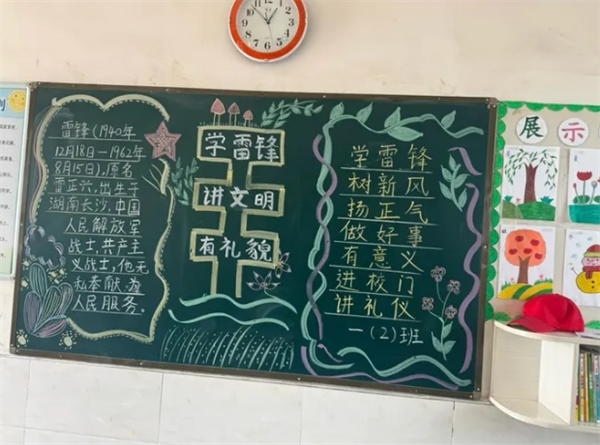 雷锋(1940年
12月18日—1962年
8月15日),原名
雷正兴,出生于
湖南长沙,中国
人民解放军
战士,共产主
义战士,他无
私奉献.为
人民服务.
学雷锋
讲文明
有礼貌
学雷锋
树新风
扬正气
做好事
有意义
进校门
讲礼仪
一(2)班
展示